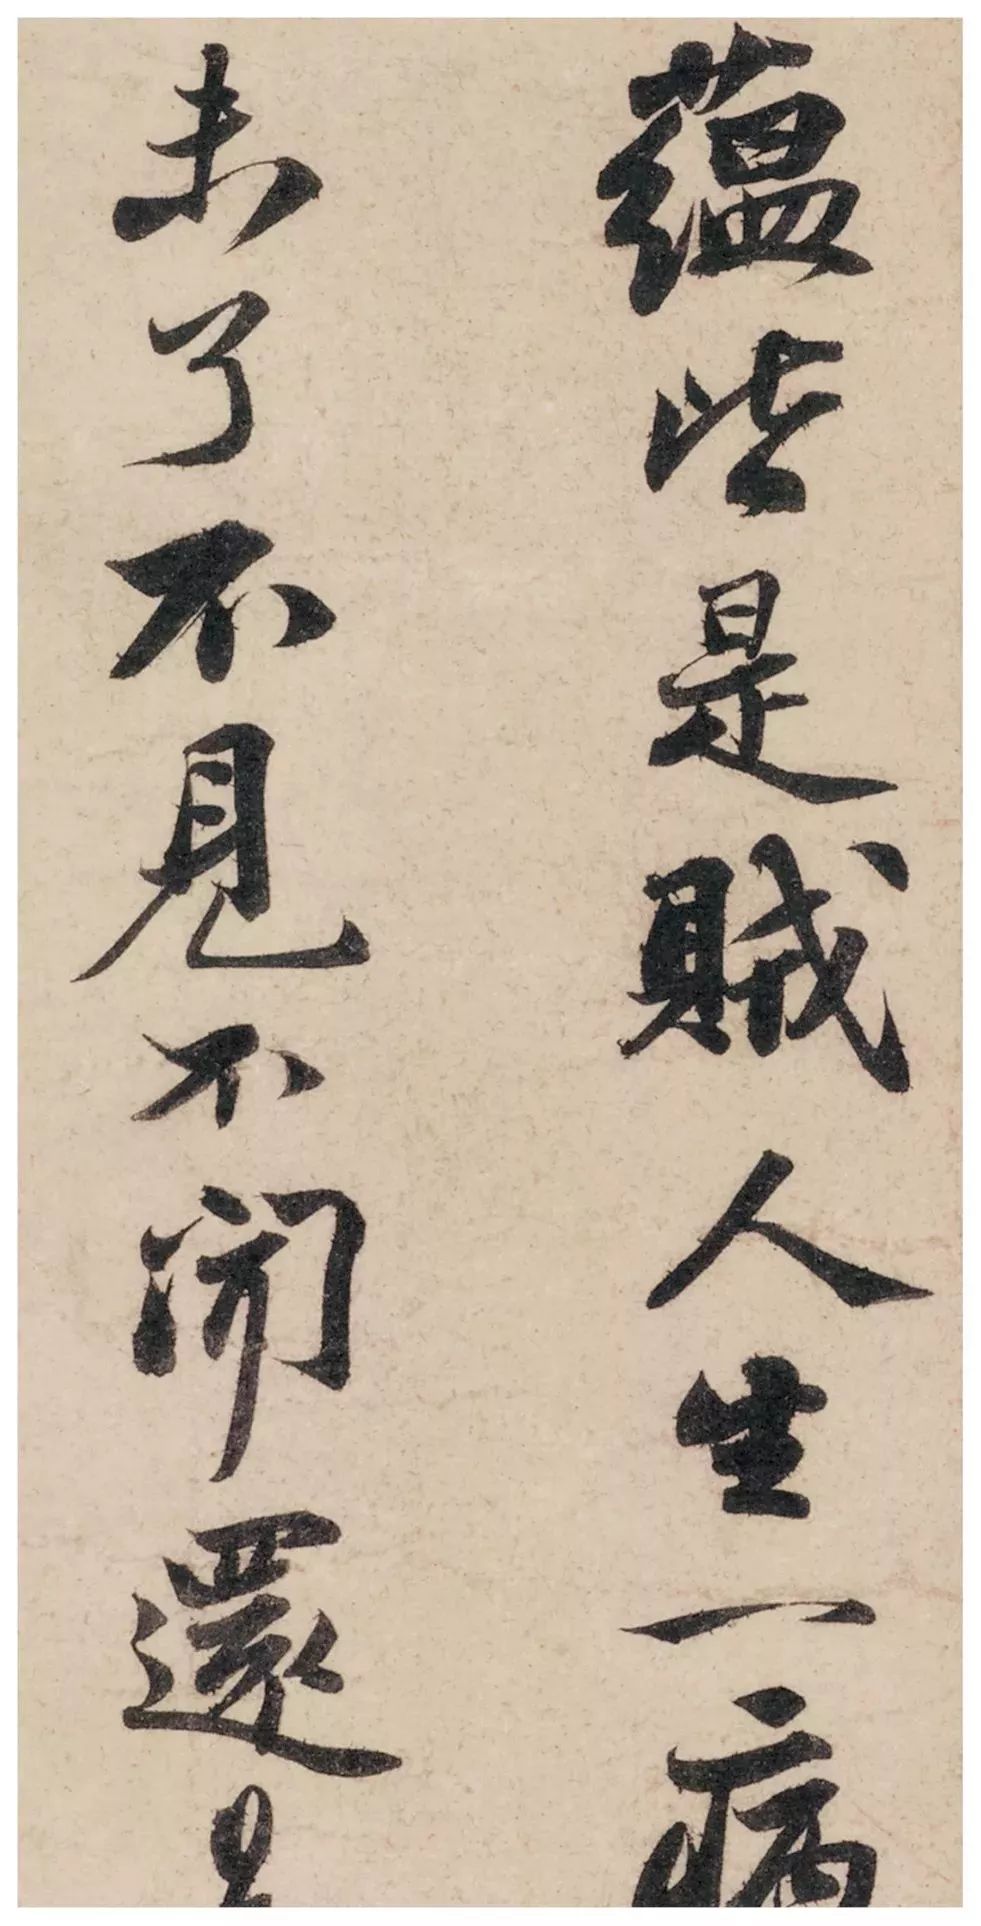 藴些是賊人生一病
未了不見不聞還